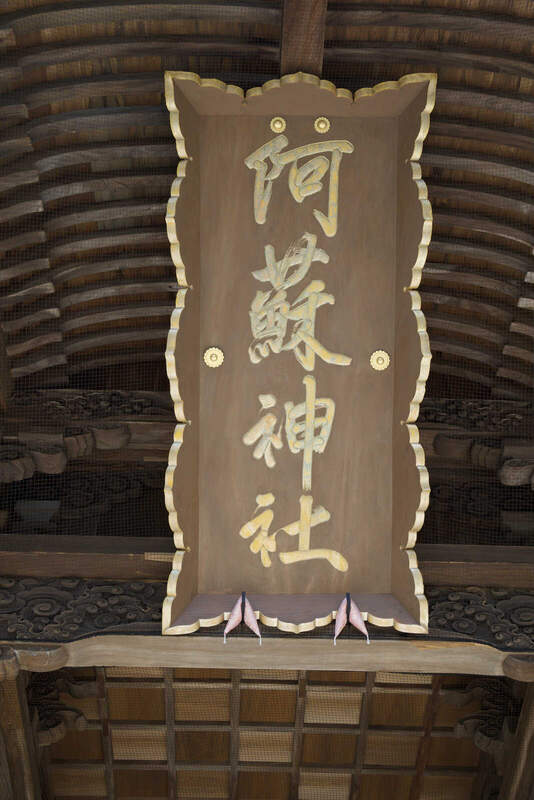 阿蘇神社